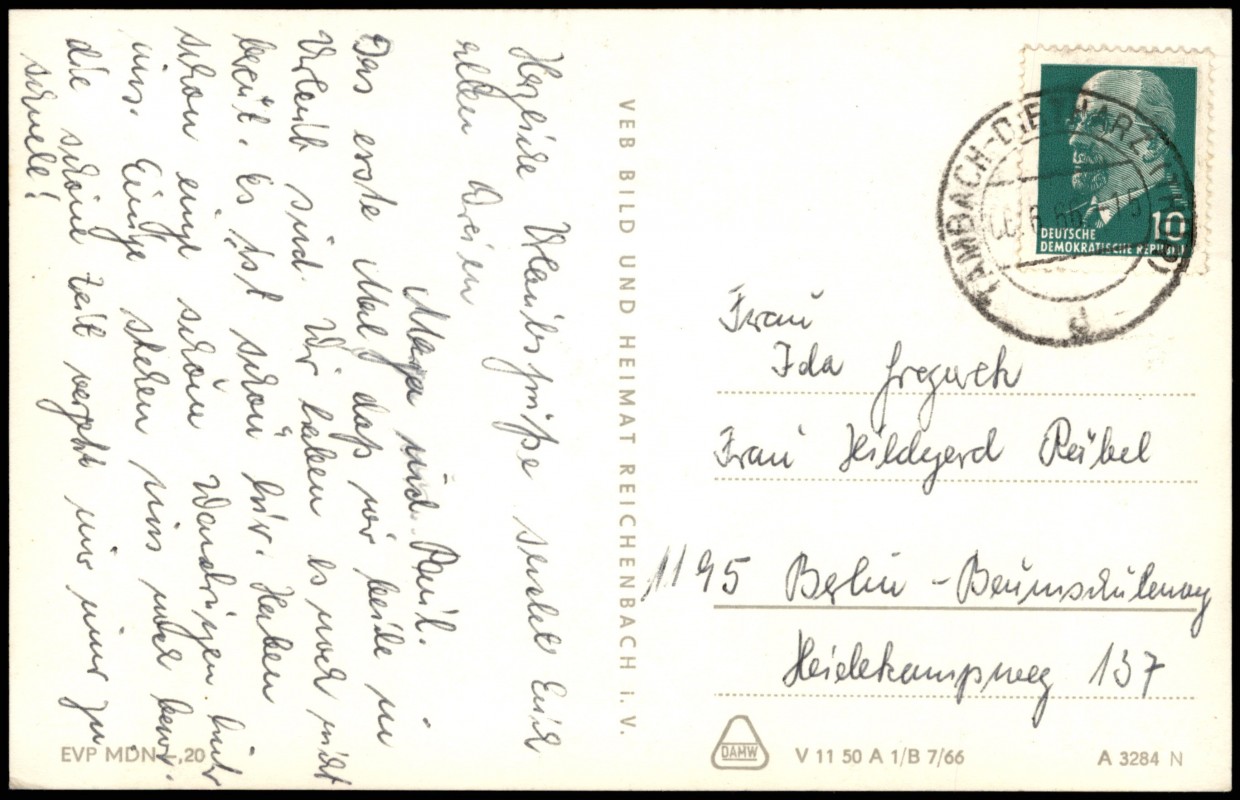 Herzliche Urlaubsgrüße sendet Euch
allen Dreien
und Paul.
Das erste Mal daß wir beide in
Urlaub sind. Wir haben es noch nicht
bereut. Es ist schön hier. Haben
schon einige schöne Wandrigen hinter
uns. Einige stehen uns noch bevor.
die schöne Zeit vergeht nur zu
schnell!
VEB BILD UND HEIMAT REICHENBACH i. V.
TAMBACH-DIETHARZ (THÜR)
d
10
DEUTSCHE
DEMOKRATISCHE REPUBLIK
Frau
Ida
Frau Hildgard Räbel
1195 Berlin - Baumschulenweg
Heidekampweg 137
EVP MDN -,20
DAMW
V 11 50 A 1/B 7/66
A 3284 N